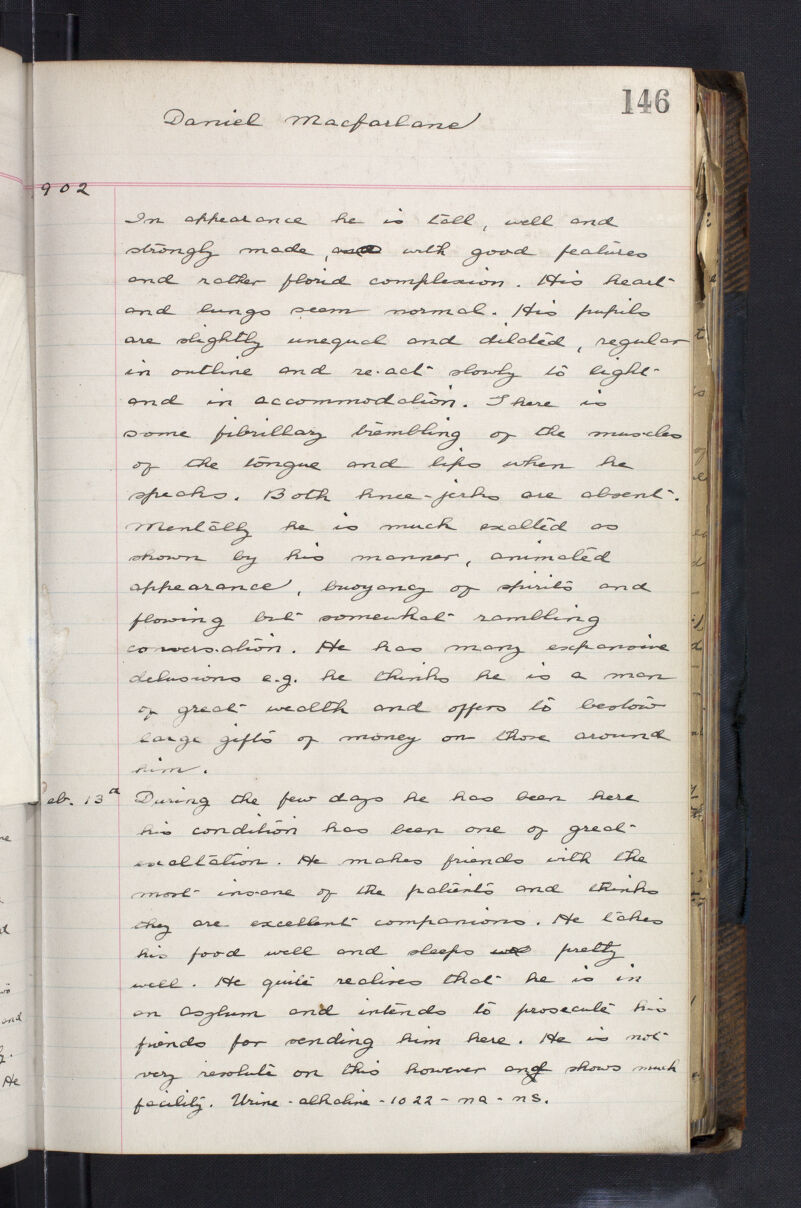 146
Daniel Macfarlane
902
In appearance he is tall, well and
strongly made, with good features
and rather florid complexion. His heart
and lungs seem normal. His pupils
are slightly unequal and dilated, regular
in outline and re-act slowly to light
and in accommodation. There is
some fibrillary trembling of the muscles
of the tongue and lips when he
speaks. Both knee-jerks are absent.
Mentally he is much exalted as
shown by his manner, animated
appearance, buoyancy of spirits and
flowing but somewhat rambling
conversation. He has many expansive
delusions e.g. he thinks he is a man
of great wealth and offers to bestow
large gifts of money on those around
him.
eb. 13 During the few days he has been here
his condition has been one of great
exaltation. He makes friends with the
most insane of the patients and thinks
they are excellent companions. He takes
his food well and sleeps pretty
well. He quite realises that he is in
an asylum and intends to prosecute his
friends for sending him here. He is not
very resolute on this however and shows much
facility. Urine - alkaline - 1022 - na - ns.
and
He